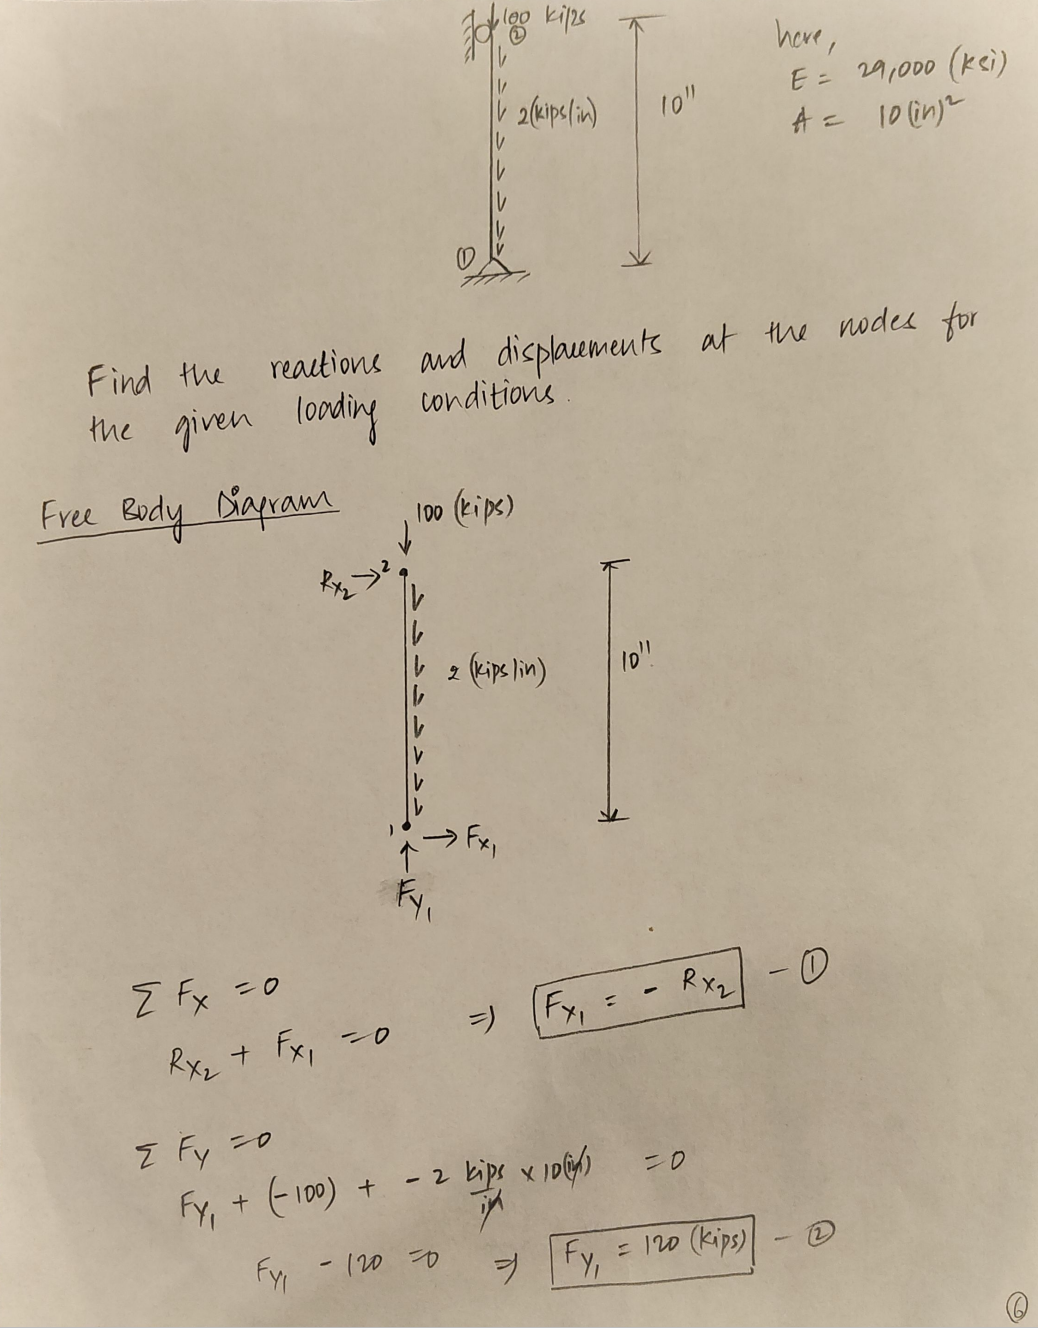 100 kips
②
2(kips/in)
10"
①
here,
E = 29,000 (ksi)
A = 10 (in)²
Find the reactions and displacements at the nodes for
the given loading conditions.
Free Body Diagram
100 (kips)
Rx₂ → 2
2 (kips/in)
10"
1 → Fx₁
Fy₁
Σ Fx = 0
Rx₂ + Fx₁ = 0 ⇒ Fx₁ = - Rx₂ - ①
Σ Fy = 0
Fy₁ + (-100) + -2 kips/in x 10(in) = 0
Fy₁ - 120 = 0 ⇒ Fy₁ = 120 (kips) - ②
⑥